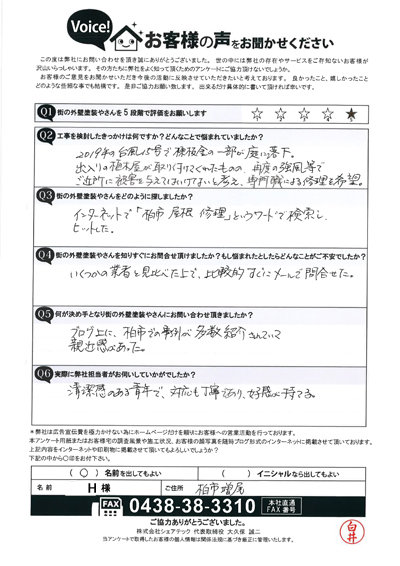 Voice!
お客様の声をお聞かせください
この度は弊社にお問い合わせを頂き誠にありがとうございました。世の中には弊社の存在やサービスをご存知ないお客様が
沢山いらっしゃいます。その方たちに弊社をよく知って頂くためのアンケートにご協力頂けないでしょうか。
お客様のご意見をお聞かせいただき今後の活動に反映させていただきたいと考えております。良かったこと、嬉しかったこと
どのような些細な事でも結構です。是非ご協力お願い致します。出来るだけ具体的に書いて頂ければ幸いです。
Q1 街の外壁塗装やさんを5段階で評価をお願いします ☆ ☆ ☆ ☆ ★
Q2 工事を検討したきっかけは何ですか?どんなことで悩まれていましたか?
2019年の台風15号で棟板金の一部が庭に落下。
出入りの植木屋が取り付けてくれたものの、再度の強風等で
ご近所に被害を与えてはいけないと考え、専門職による修理を希望。
Q3 街の外壁塗装やさんをどのように探しましたか?
インターネットで「柏市 屋根 修理」というワードで検索し、
ヒットした。
Q4 街の外壁塗装やさんを知りすぐにお問合せ頂けましたか?もし悩まれたとしたらどんなことがご不安でしたか?
いくつかの業者と見比べた上で、比較的すぐにメールで問合せた。
Q5 何が決め手となり街の外壁塗装やさんにお問い合わせ頂きましたか?
ブログ上に、柏市での事例が多数紹介されていて
親近感があった。
Q6 実際に弊社担当者がお伺いしていかがでしたか?
清潔感のある青年で、対応も丁寧であり、好感が持てる。
*弊社は広告宣伝費を極力かけない為にホームページだけを頼りにお客様への営業活動を行っております。
本アンケート用紙またはお客様宅の調査風景や施工状況、お客様の顔写真を随時ブログ形式のインターネットに掲載させて頂いております。
上記内容をインターネットや印刷物に掲載させて頂いてもよろしいでしょうか?
下記の中から〇印をお付下さい。
( 〇 ) 名前を出してもよい ( ) イニシャルなら出してもよい
お名前 H様 ご住所 柏市増尾
FAX 0438-38-3310 本社直通 FAX番号
ご協力ありがとうございました。
株式会社シェアテック 代表取締役 大久保 誠二
当アンケートで取得したお客様の個人情報は関係法規に基づき厳正に管理いたします。
白井